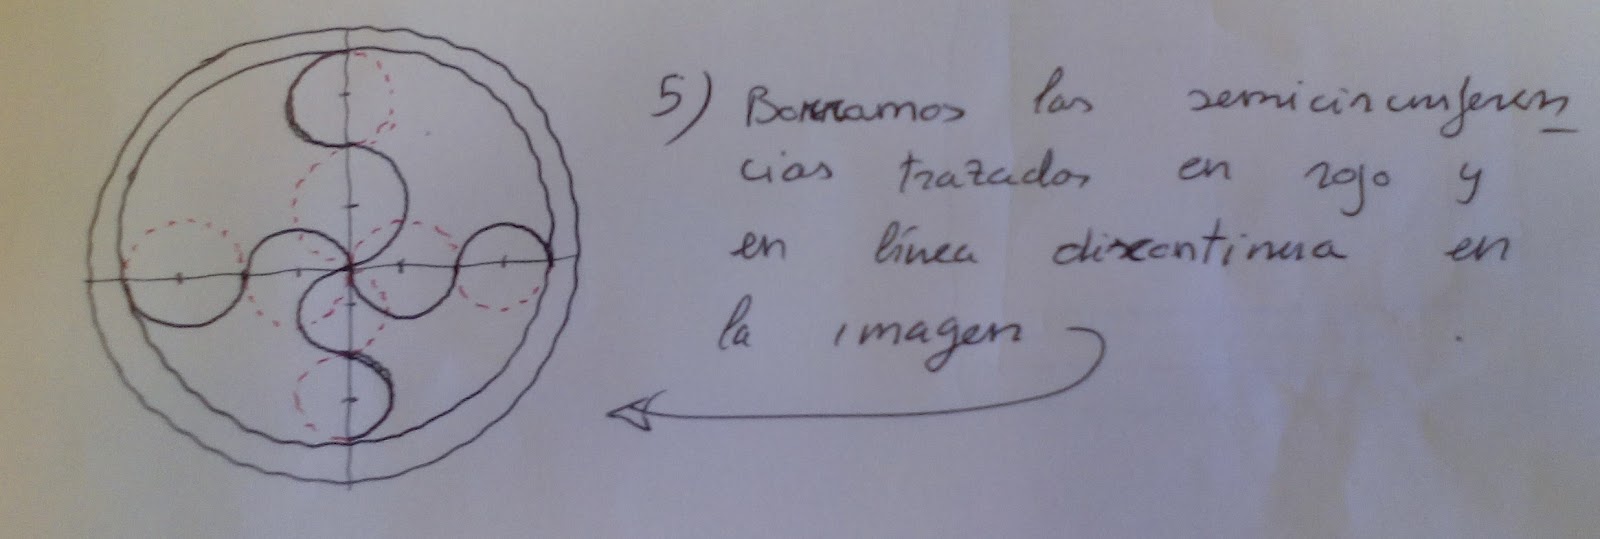 5) Borramos las semicircunferen
cias trazados en rojo y
en línea discontinua en
la imagen